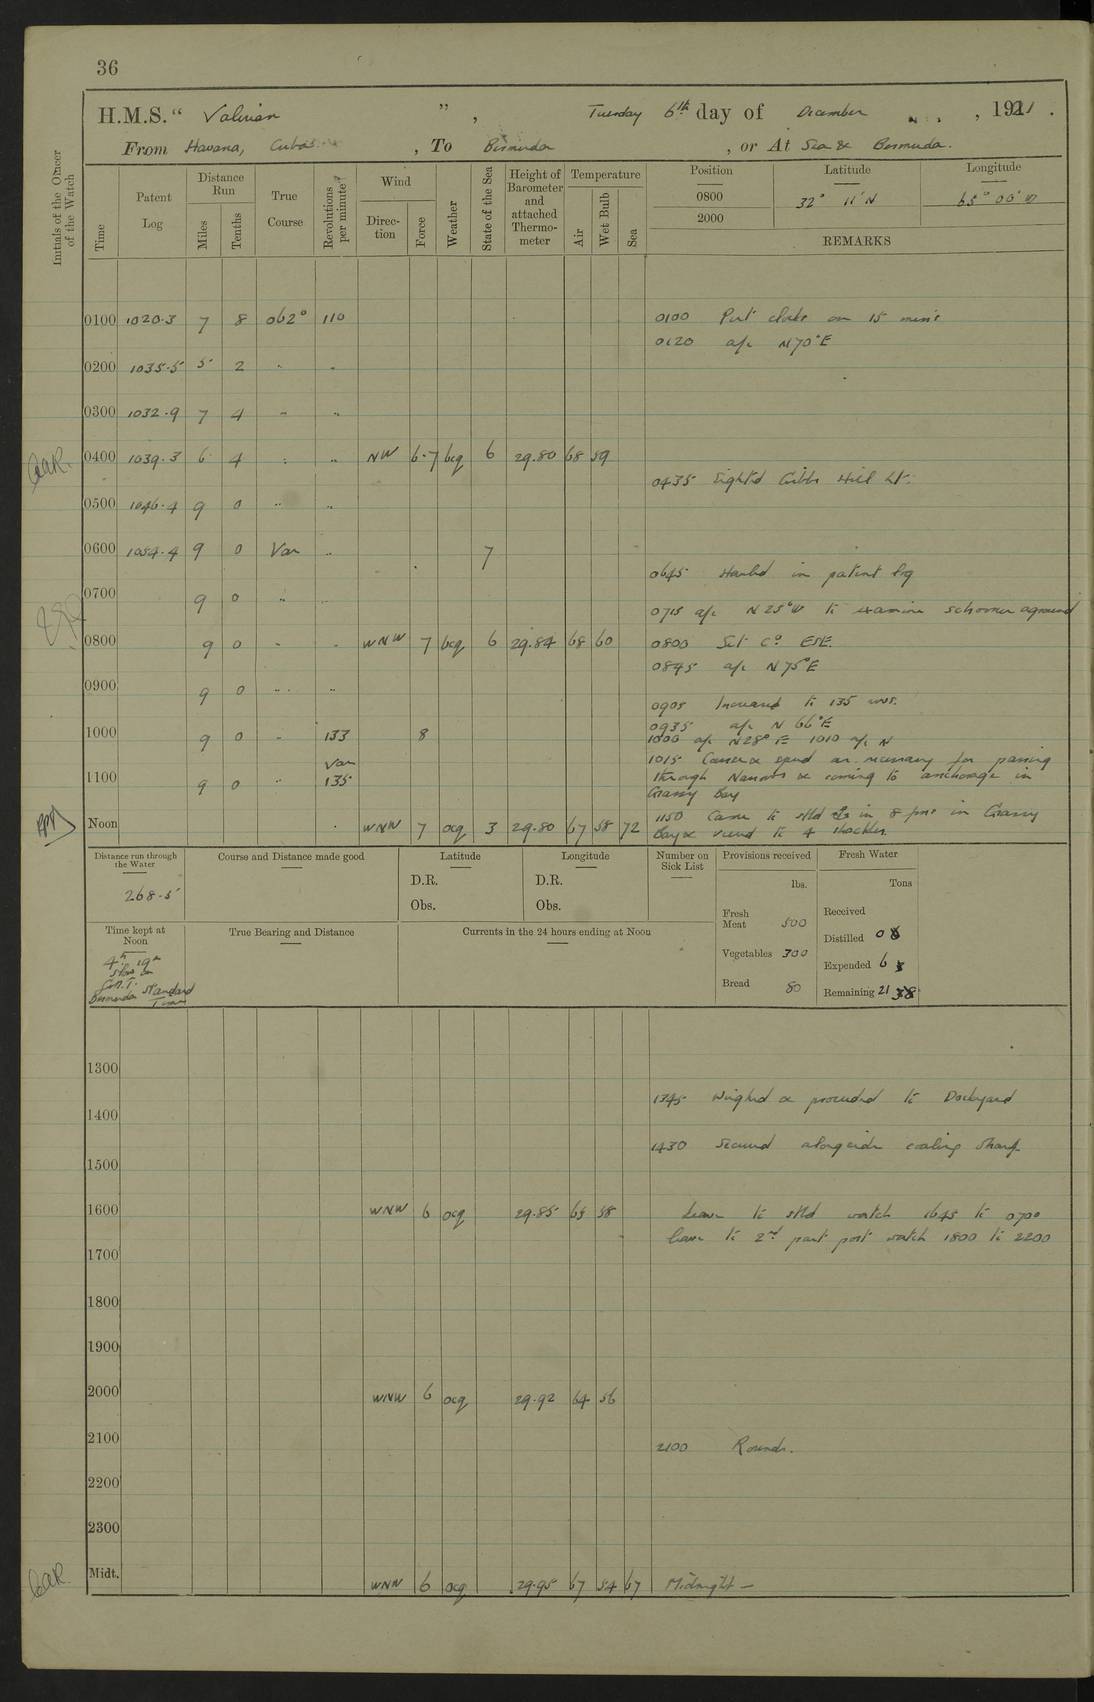 36
H.M.S. “ Valerian ” , Tuesday 6th day of December , 1921 .
From Havana, Cuba , To Bermuda , or At Sea & Bermuda.
Initials of the Officer of the Watch
Time
Patent Log
Distance Run
Miles
Tenths
True Course
Revolutions per minute
Wind
Direction
Force
Weather
State of the Sea
Height of Barometer and attached Thermometer
Temperature
Air
Wet Bulb
Sea
Position Latitude Longitude
0800 32° 11' N 65° 00' W
2000
REMARKS
0100 1020.3 7 8 062° 110 0100 Put clocks on 15 mins
0120 a/c N70°E
0200 1035.5 5 2 " "
0300 1032.9 7 4 " "
0400 1039.3 6 4 " " NW 6-7 bcq 6 29.80 68 59
0435 Sighted Gibbs Hill Lt.
0500 1046.4 9 0 " "
0600 1054.4 9 0 Var " 7
0645 Hauled in patent log
0700 9 0 "
0715 a/c N25°W to examine schooner aground
0800 9 0 " " WNW 7 bcq 6 29.84 68 60 0800 Set Co. ESE.
0845 a/c N75°E
0900 9 0 " "
0905 Increased to 135 revs.
0935 a/c N 66°E
1000 9 0 " 133 8 1000 a/c N28°E 1010 a/c N
Var 1015 Course & speed as necessary for passing
1100 9 0 " 135 through Narrows & coming to anchorage in
Grassy Bay
1150 Came to stbd in 8 fms in Grassy
Noon WNW 7 ocq 3 29.80 67 58 72 Bay & veered to 4 shackles.
Distance run through the Water
268.5
Course and Distance made good
Latitude
D.R.
Obs.
Longitude
D.R.
Obs.
Number on Sick List
Provisions received
lbs.
Fresh Meat 500
Vegetables 300
Bread 80
Fresh Water
Tons
Received
Distilled 0
Expended 6
Remaining 21
Time kept at Noon
4h 19m
slow on
G.M.T.
Bermuda Standard
Time
True Bearing and Distance
Currents in the 24 hours ending at Noon
1300
1345 Weighed & proceeded to Dockyard
1400
1430 Secured alongside coaling wharf
1500
1600 WNW 6 ocq 29.85 65 58 Leave to stbd watch 1645 to 0700
Leave to 2nd part port watch 1800 to 2200
1700
1800
1900
2000 WNW 6 ocq 29.92 64 56
2100 2100 Rounds.
2200
2300
Midt. WNW 6 ocq 29.95 67 54 67 Midnight —